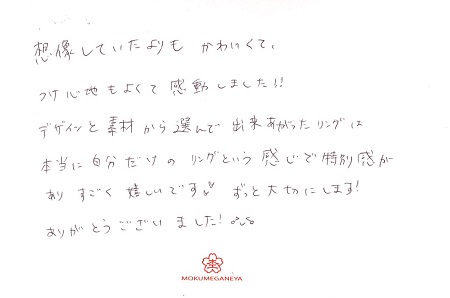 想像していたよりも かわいくて、
つけ心地もよくて 感動しました!!
デザインと素材から選んで 出来あがったリングは
本当に自分だけの リングという 感じで特別感が
あり すごく 嬉しいです ずっと大切にします!
ありがとうございました!
MOKUMEGANEYA